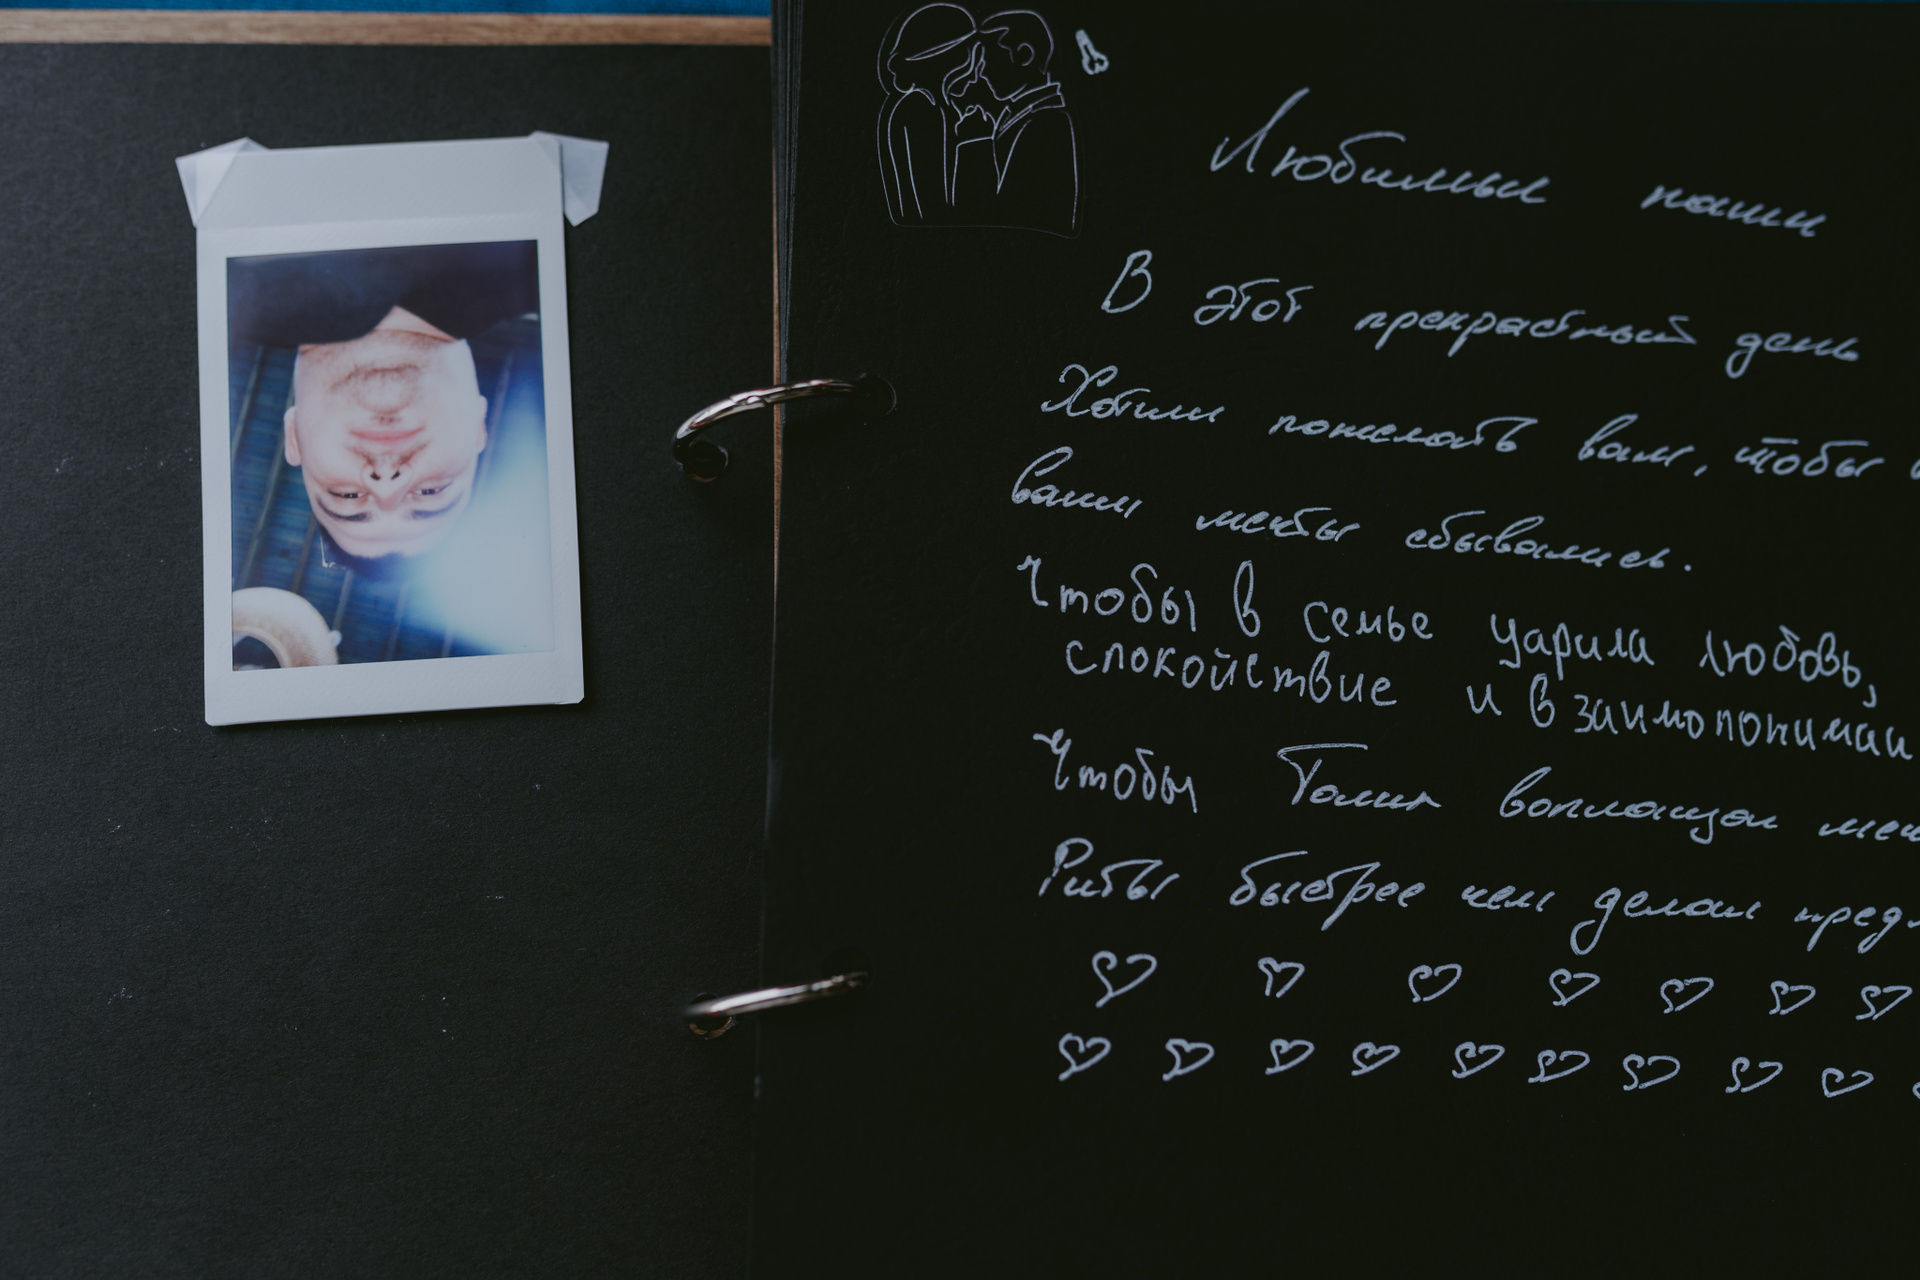 Любимые наши
В этот прекрастный день
Хотим пожелать вам, чтобы
ваши мечты сбывались.
Чтобы в семье царила любовь,
спокойствие и взаимопонимани
Чтобы Толик воплощал меч
Риты быстрее чем делал предл